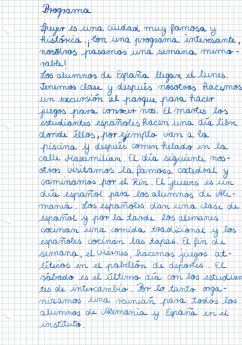 Programa
Speyer es una ciudad muy famosa y
histórica, con una programa interesante,
nosotros pasamos una semana memo-
rable!
Los alumnos de España llegan el lunes.
Tenemos clase y después nosotros hacemos
un excursión al parque para hacer
juegos para conocer nos. El martes los
estudiantes españoles hacen una día libre
donde ellos, por ejemplo van a la
piscina y después comen helado en la
calle Maximilian. El día seguiente nos-
otros visitamos la famosa catedral y
caminamos por el Rin. El jueves es un
día español para los alumnos de Ale-
mania. Los españoles dan una clase de
español y por la tarde los alemanes
cocinan una comida tradicional y los
españoles cocinan las tapas. El fin de
semana, el viernes, hacemos juegos at-
léticos en el pabellón de deportes. El
sábado es el último día con los estudian-
tes de intercambio. Por lo tanto orga-
nizamos una reunión para todos los
alumnos de Alemania y España en el
instituto.